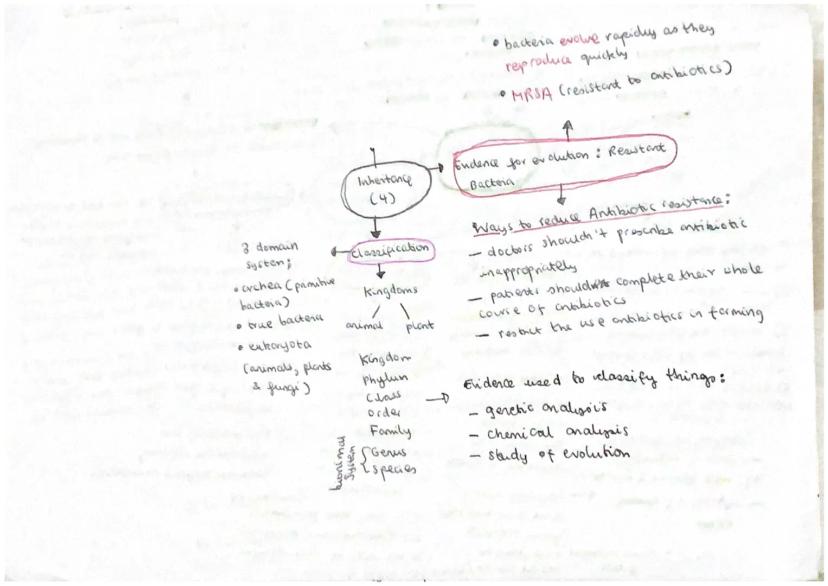 • bacteria evolve rapidly as they
reproduce quickly
• MRSA (resistant to antibiotics)
Evidence for evolution : Resistant
Bacteria
Inheritance
(4)
Ways to reduce Antibiotic resistance:
— doctors shouldn't prescribe antibiotic
inappropriately
— patients should complete their whole
course of antibiotics
— restrict the use antibiotics in farming
classification
3 domain
system;
• archea (primitive
bacteria)
• true bacteria
• eukaryota
(animals, plants
& fungi)
Kingdoms
animal plant
Kingdom
phylum
Class
order
Family
Genus
Species
system
Evidence used to classify things:
— genetic analysis
— chemical analysis
— study of evolution